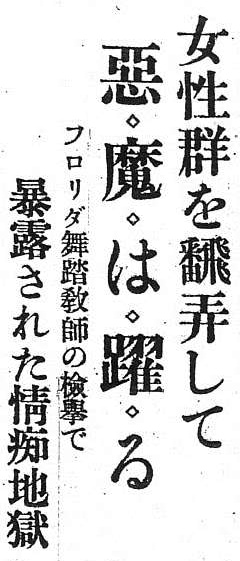 女性群を飜弄して
惡◇魔◇は◇躍◇る
フロリダ舞踏敎師の檢擧で
暴露された情痴地獄